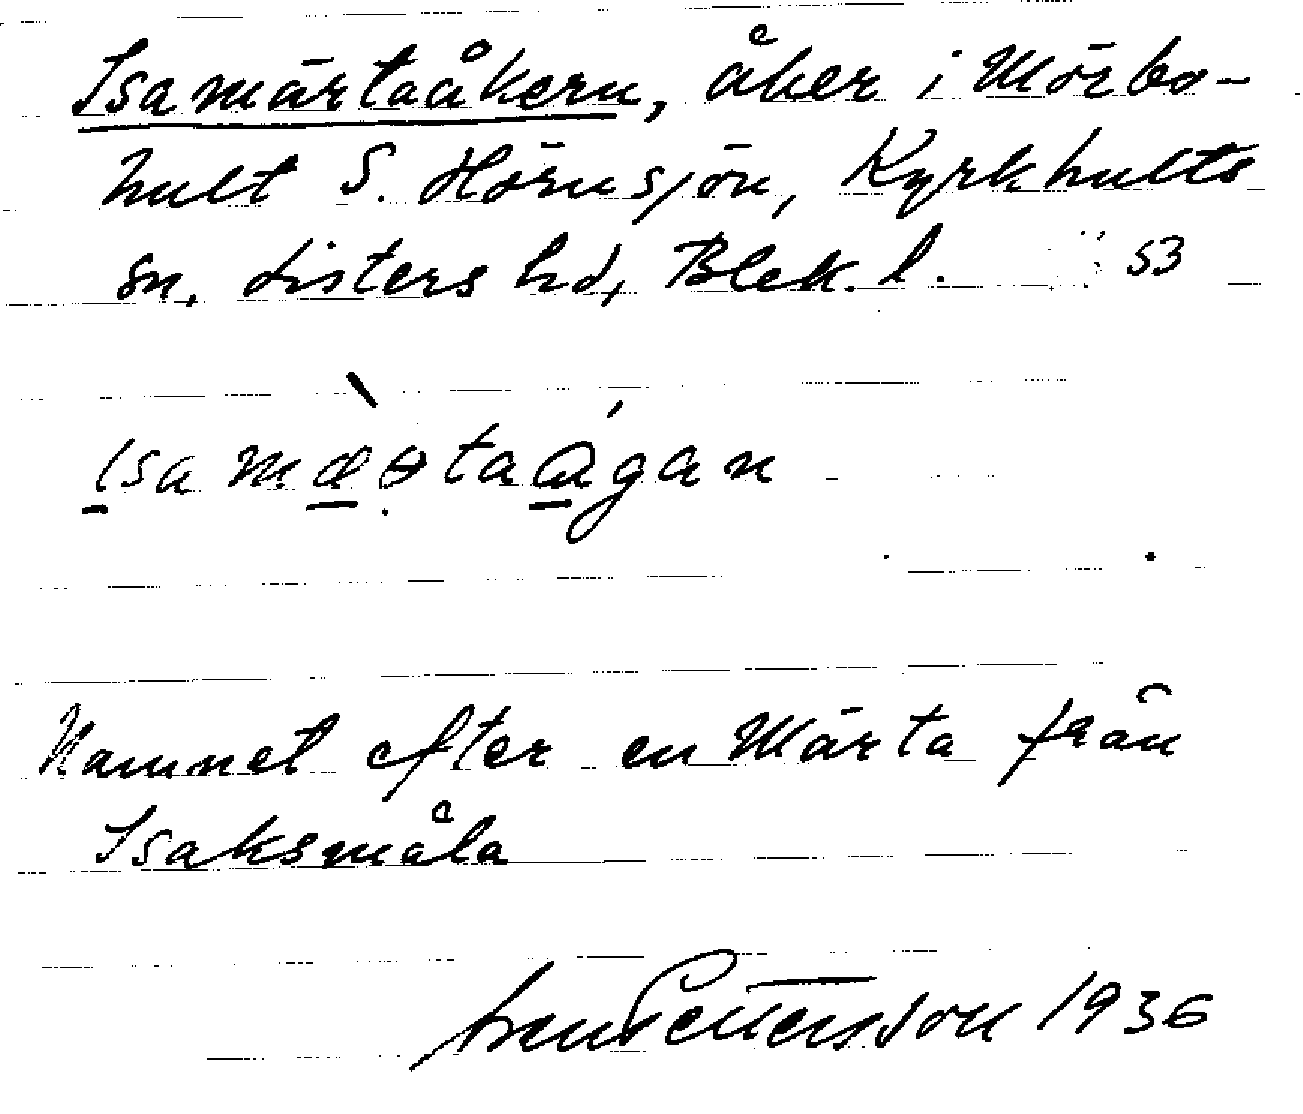 Isamärtaåkern, åker i Mörbo-
hult S. Hörnsjön, Kyrkhults
sn, Listers hd, Blek. l. 53
ısamæ̀ɵtaɑ́gan
Namnet efter en Märta från
Isaksmåla
Pettersson 1936